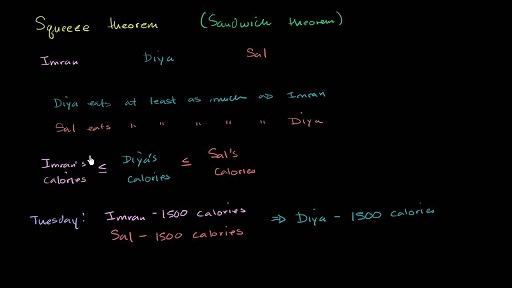 Squeeze theorem (Sandwich theorem)
Imran Diya Sal
Diya eats at least as much as Imran
Sal eats " " " " " Diya
Imran's calories ≤ Diya's calories ≤ Sal's calories
Tuesday: Imran - 1500 calories ⇒ Diya - 1500 calories
Sal - 1500 calories